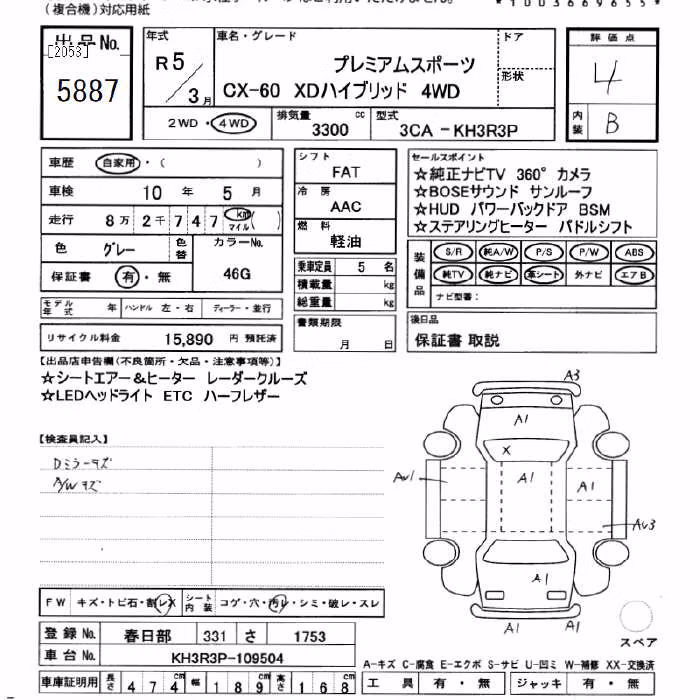 (複合機)対応用紙
*1003669655*
出品No.
[2053]
5887
年式
R5/3月
車名・グレード
プレミアムスポーツ
CX-60 XDハイブリッド 4WD
ドア
形状
評価点
4
内装
B
2WD・4WD
排気量
3300 cc
型式
3CA-KH3R3P
車歴 自家用・( )
車検 10年 5月
走行 8万2千747 Km マイル( )
色 グレー
色替
カラーNo.
46G
保証書 有・無
モデル年式 年 ハンドル 左・右 ディーラー・並行
リサイクル料金 15,890円 預託済
シフト
FAT
冷房
AAC
燃料
軽油
乗車定員 5名
積載量 kg
総重量 kg
書類期限
月 日
セールスポイント
☆純正ナビTV 360°カメラ
☆BOSEサウンド サンルーフ
☆HUD パワーバックドア BSM
☆ステアリングヒーター パドルシフト
装備品
S/R 純A/W P/S P/W ABS
純TV 純ナビ 革シート 外ナビ エアB
ナビ型番:
後日品
保証書 取説
【出品店申告欄(不良箇所・欠品・注意事項等)】
☆シートエアー&ヒーター レーダークルーズ
☆LEDヘッドライト ETC ハーフレザー
【検査員記入】
Dミラーキズ
A/Wキズ
A3
A1
X
Aw1
A1
A1
Aw3
A1
A1
A1
スペア
FW キズ・トビ石・割レX
シート内装 コゲ・穴・汚レ・シミ・破レ・スレ
登録No. 春日部 331 さ 1753
車台No. KH3R3P-109504
車庫証明用 長さ 474cm 幅 189cm 高さ 168cm
A-キズ C-腐食 E-エクボ S-サビ U-凹ミ W-補修 XX-交換済
工具 有・無 ジャッキ 有・無